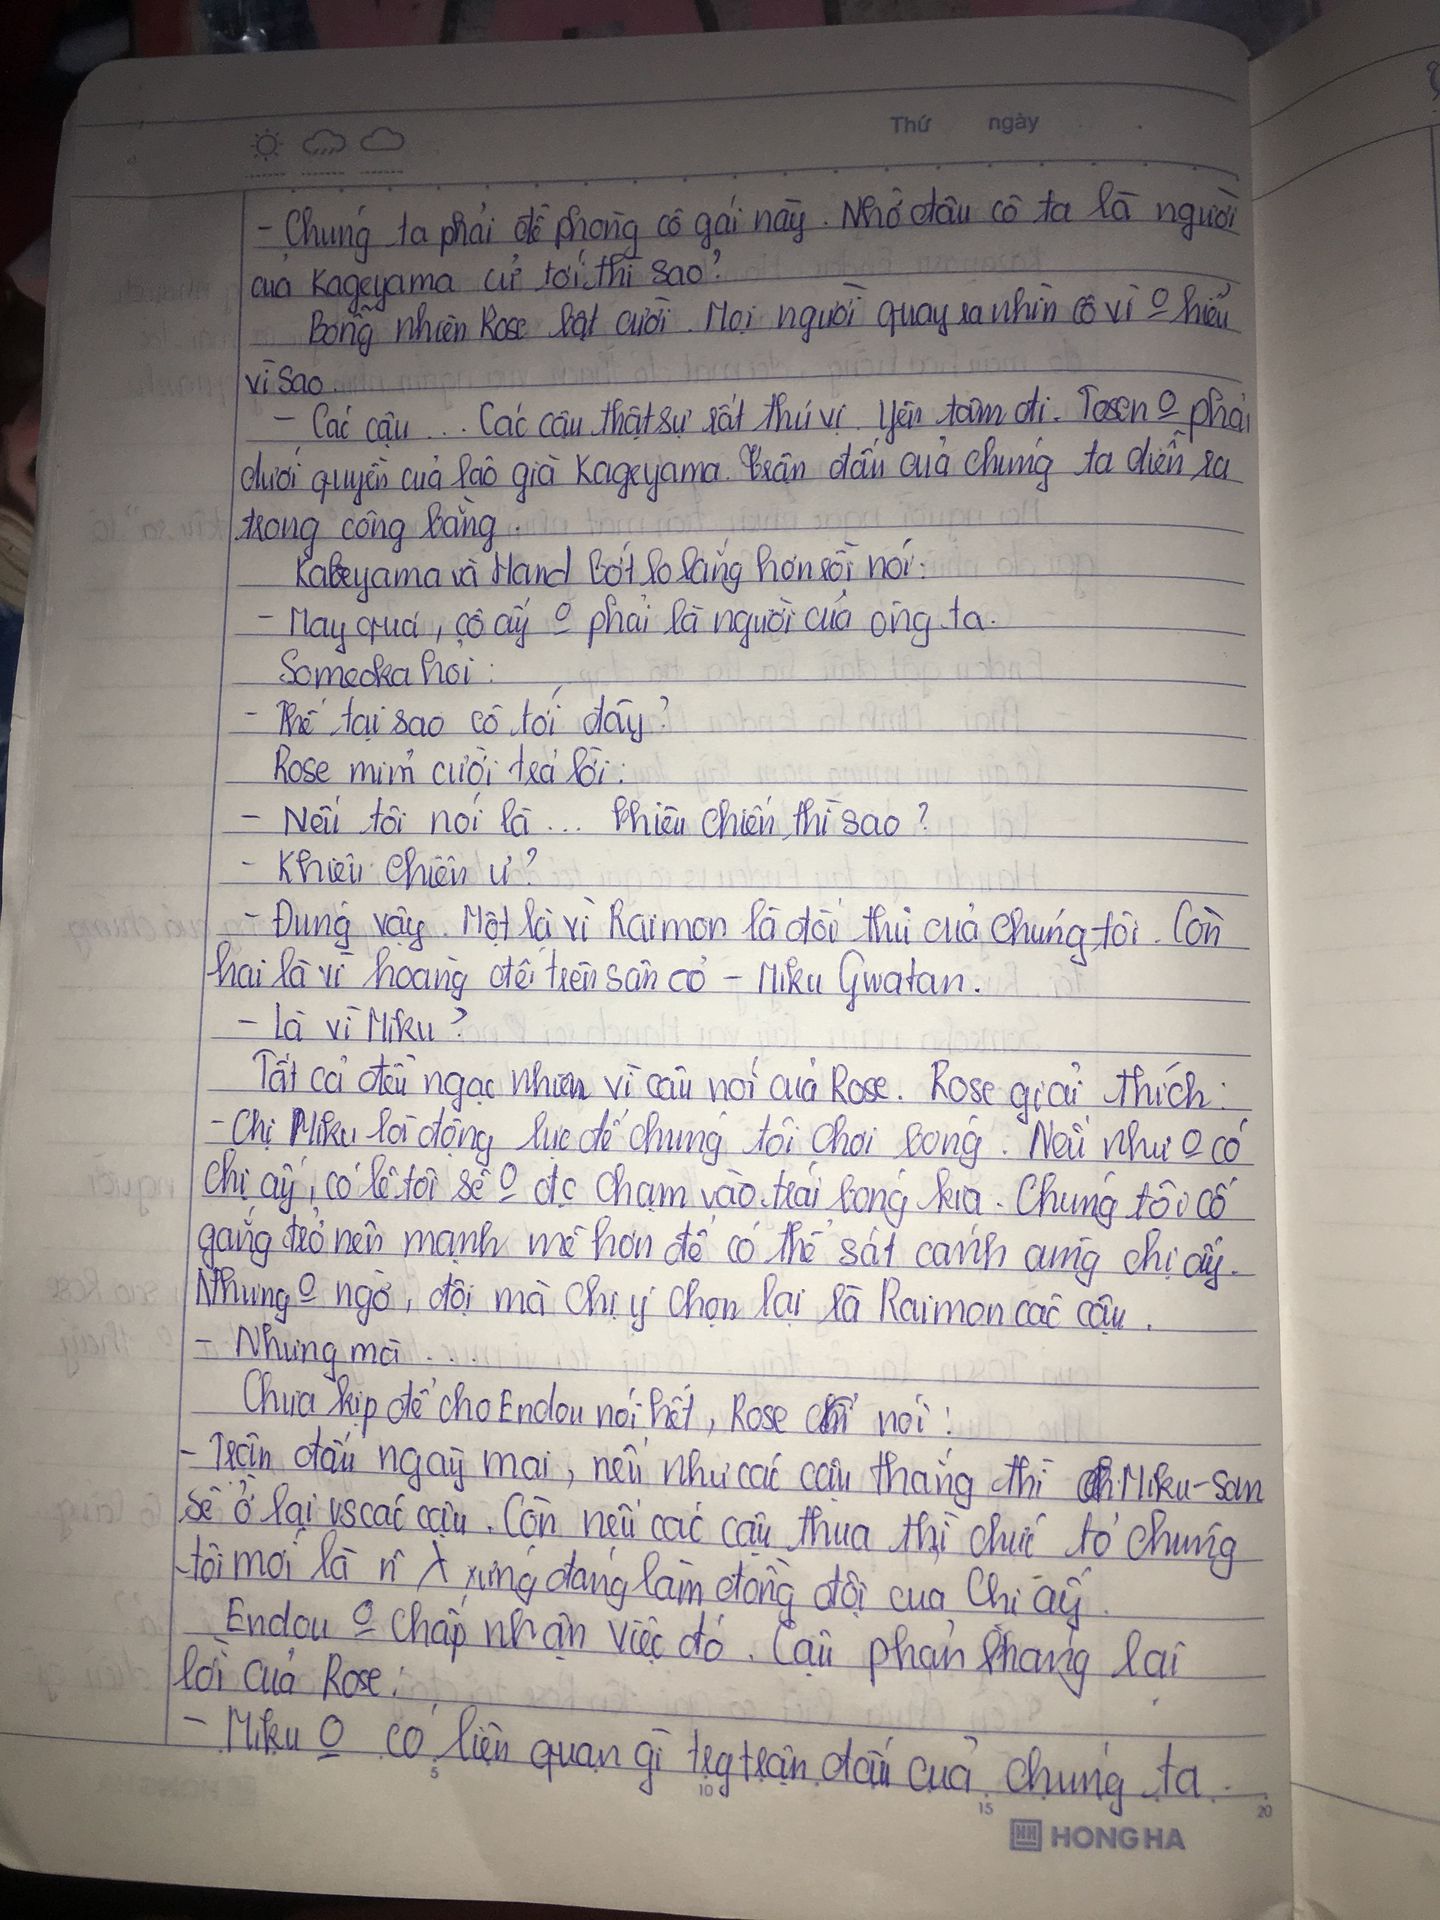 Thứ ngày
- Chúng ta phải đề phòng cô gái này. Nhỡ đâu cô ta là người
của Kageyama cử tới thì sao?
Bỗng nhiên Rose bật cười. Mọi người quay ra nhìn cô vì o hiểu
vì sao
- Các cậu... Các cậu thật sự rất thú vị. Yên tâm đi. Tosen o phải
dưới quyền của lão già Kageyama. Trận đấu của chúng ta diễn ra
trong công bằng.
Kabeyama và Hand bớt lo lắng hơn rồi nói:
- May quá, cô ấy o phải là người của ông ta.
Someoka hỏi:
- Thế tại sao cô tới đây?
Rose mỉm cười trả lời:
- Nếu tôi nói là... khiêu chiến thì sao?
- Khiêu chiến ư?
- Đúng vậy. Một là vì Raimon là đối thủ của chúng tôi. Còn
hai là vì hoàng đế trên sân cỏ - Miku Gwatan.
- Là vì Miku?
Tất cả đều ngạc nhiên vì câu nói của Rose. Rose giải thích:
- Chị Miku là động lực để chúng tôi chơi bóng. Nếu như o có
chị ấy, có lẽ tôi sẽ o đc chạm vào trái bóng kia. Chúng tôi cố
gắng trở nên mạnh mẽ hơn để có thể sát cánh cùng chị ấy.
Nhưng o ngờ, đội mà chị ý chọn lại là Raimon các cậu.
- Nhưng mà....
Chưa kịp để cho Endou nói hết, Rose chỉ nói:
- Trận đấu ngày mai, nếu như các cậu thắng thì Miku-san
sẽ ở lại vs các cậu. Còn nếu các cậu thua thì chứ tỏ chúng
tôi mới là n λ xứng đáng làm đồng đội của Chị ấy.
Endou o chấp nhận việc đó. Cậu phản kháng lại
lời của Rose:
- Miku o có liên quan gì trg trận đấu của chúng ta.
5 10 15 20
HH HONG HA